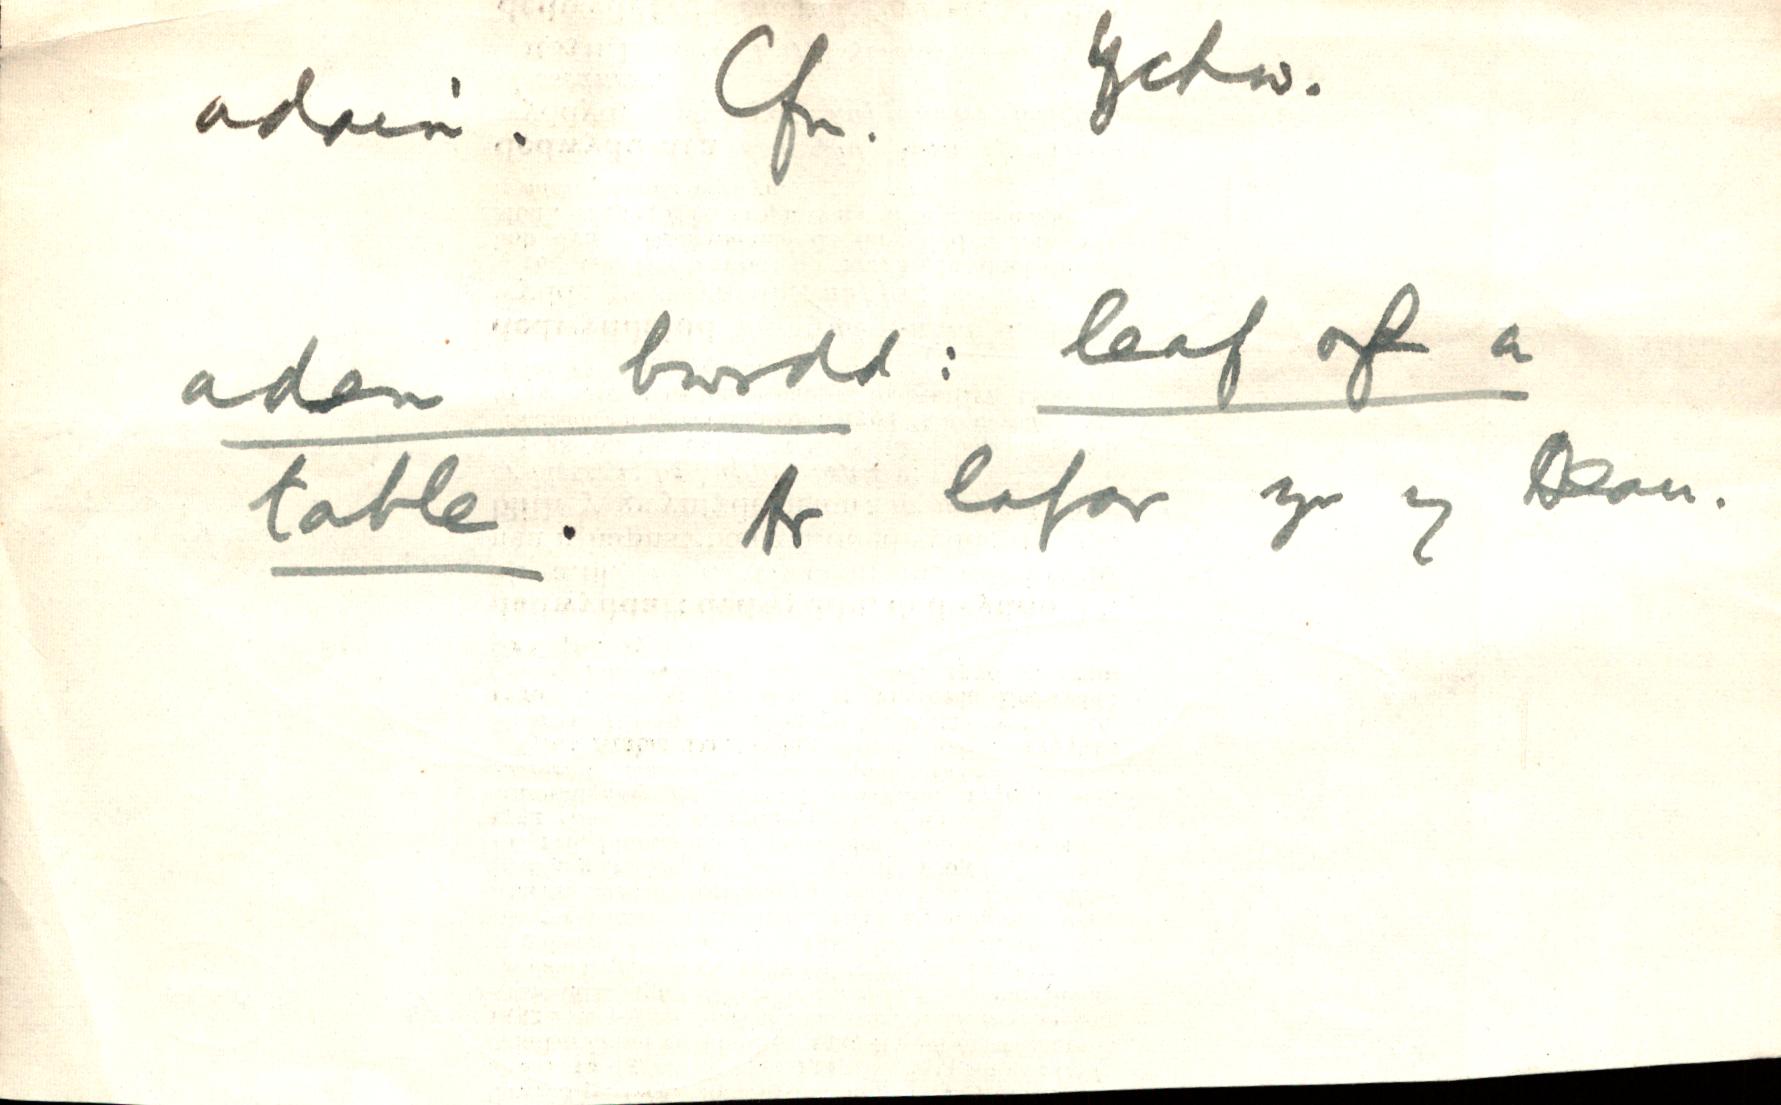 adain. Cfn. Ychw.
aden bwrdd: leaf of a
table. Ar lafar yn y De